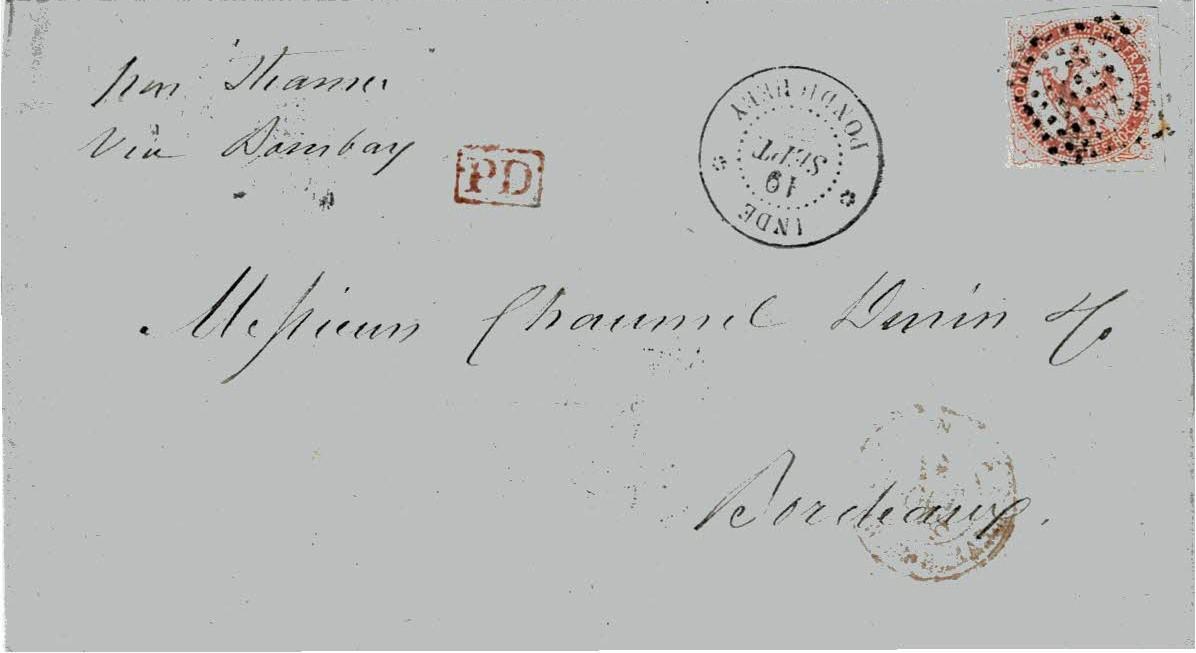 par Steamer
Via Bombay
PD
PONDICHERY
19
SEPT
INDE
Messieurs Chaumel Durin & Co
Bordeaux.